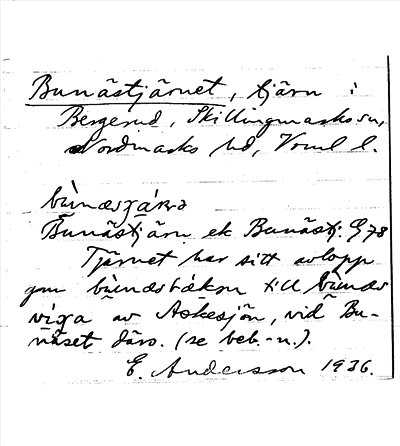 Bunästjärnet, tjärn i
Bergerud, Skillingmarks sn,
Nordmarks hd, Vrml l.
bùnæs
Bunästjärn ek Bunästj. G 78
Tjärnet har sitt avlopp
gm bùnæsbäkən till bùnæs
viga av Askesjön, vid Bu-
näset därs. (se beb.-n.).
E. Andersson 1936.